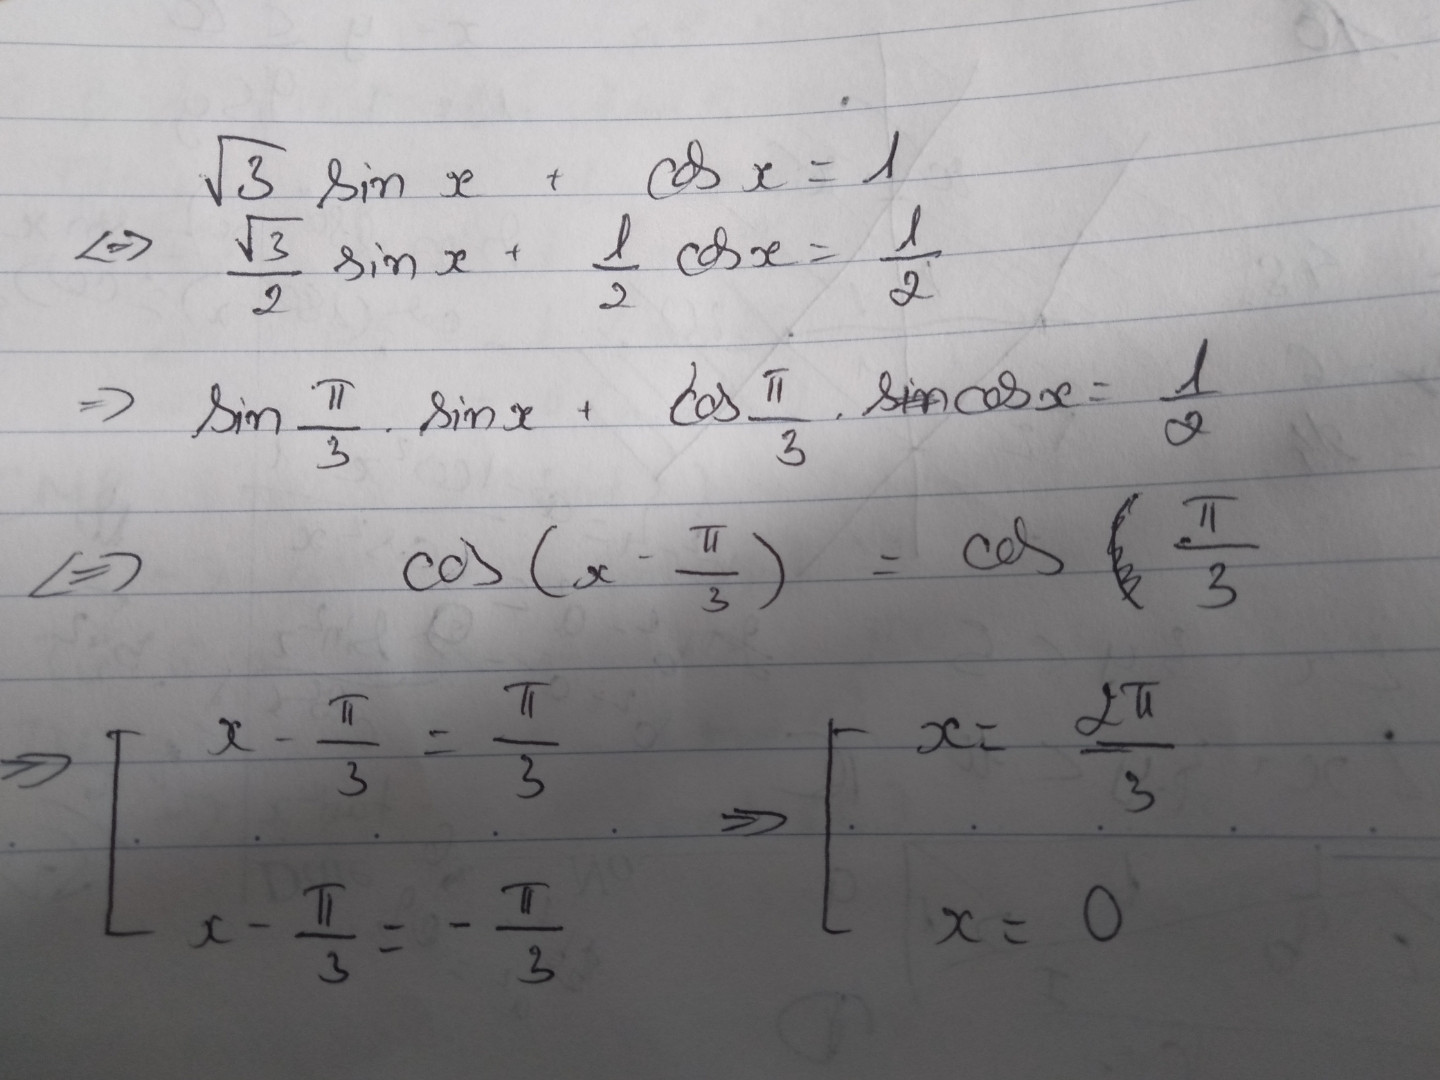 √3 sin x + cos x = 1
<=> √3/2 sin x + 1/2 cos x = 1/2
=> sin π/3 . sin x + cos π/3 . cos x = 1/2
<=> cos (x - π/3) = cos π/3
=> [ x - π/3 = π/3 => [ x = 2π/3
x - π/3 = - π/3 x = 0